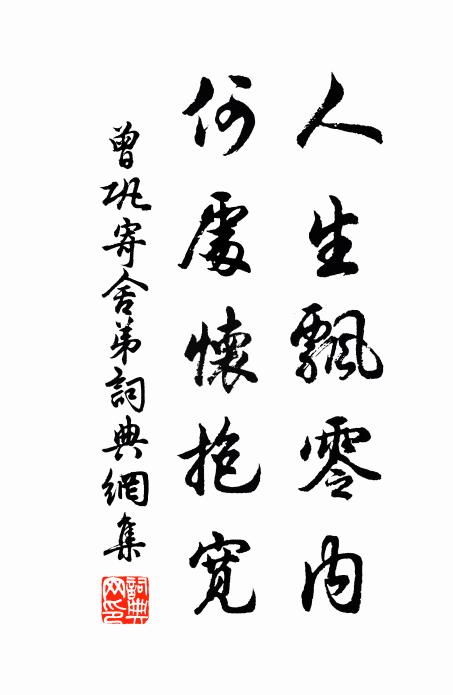 人生飄零内
何處懷抱寬
曾巩寄舍弟詞典網集
詞典网印